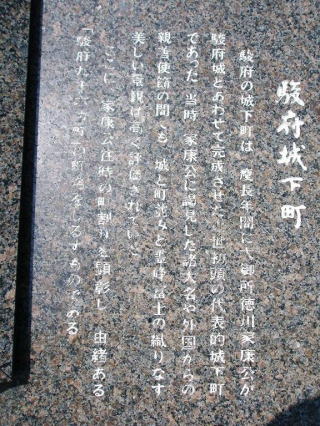 駿府城下町
駿府の城下町は、慶長年間に大御所徳川家康公が
駿府城とあわせて完成させた、近世初頭の代表的城下町
であった。当時、家康公に謁見した諸大名や外国からの
親善使節の間でも、城と町並みと霊峰富士の織りなす
美しい景観は高く評価されていた。
ここに、家康公在時の町割りを顕彰し、由緒ある
「駿府九十六ヶ町」の町名をしるすものである。